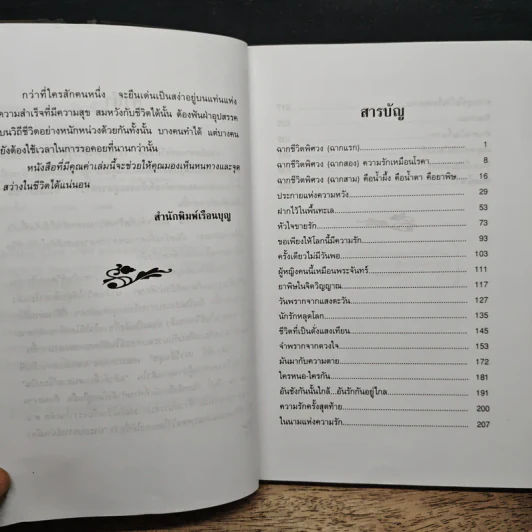 กว่าที่ใครสักคนหนึ่ง จะยืนเด่นเป็นสง่าอยู่บนแท่นแห่ง
ความสำเร็จที่มีความสุข สมหวังกับชีวิตได้นั้น ต้องพันฝ่าอุปสรรค
บนวิถีชีวิตอย่างหนักหน่วงด้วยกันทั้งนั้น บางคนทำได้ แต่บางคน
ยังต้องใช้เวลาในการรอคอยที่นานกว่านั้น
หนังสือที่มีคุณค่าเล่มนี้จะช่วยให้คุณมองเห็นหนทางและจุด
สว่างในชีวิตได้แน่นอน
สำนักพิมพ์เรือนบุญ
สารบัญ
ฉากชีวิตพิศวง (ฉากแรก) 1
ฉากชีวิตพิศวง (ฉากสอง) ความรักเหมือนโรคา 8
ฉากชีวิตพิศวง (ฉากสาม) คือน้ำผึ้ง คือน้ำตา คือยาพิษ 16
ประกายแห่งความหวัง 29
ฝากไว้ในพื้นทะเล 53
หัวใจขายรัก 73
ขอเพียงให้โลกนี้มีความรัก 93
ครั้งเดียวไม่มีวันพอ 103
ผู้หญิงคนนี้เหมือนพระจันทร์ 111
ยาพิษในจิตวิญญาณ 117
วันพรากจากแสงตะวัน 127
นักรักหลุดโลก 135
ชีวิตที่เป็นดั่งแสงเทียน 145
จำพรากจากดวงใจ 153
มันมากับความตาย 172
ใครหนอ-ใครกัน 181
อันชังกันนั้นใกล้...อันรักกันอยู่ไกล 191
ความรักครั้งสุดท้าย 200
ในนามแห่งความรัก 207